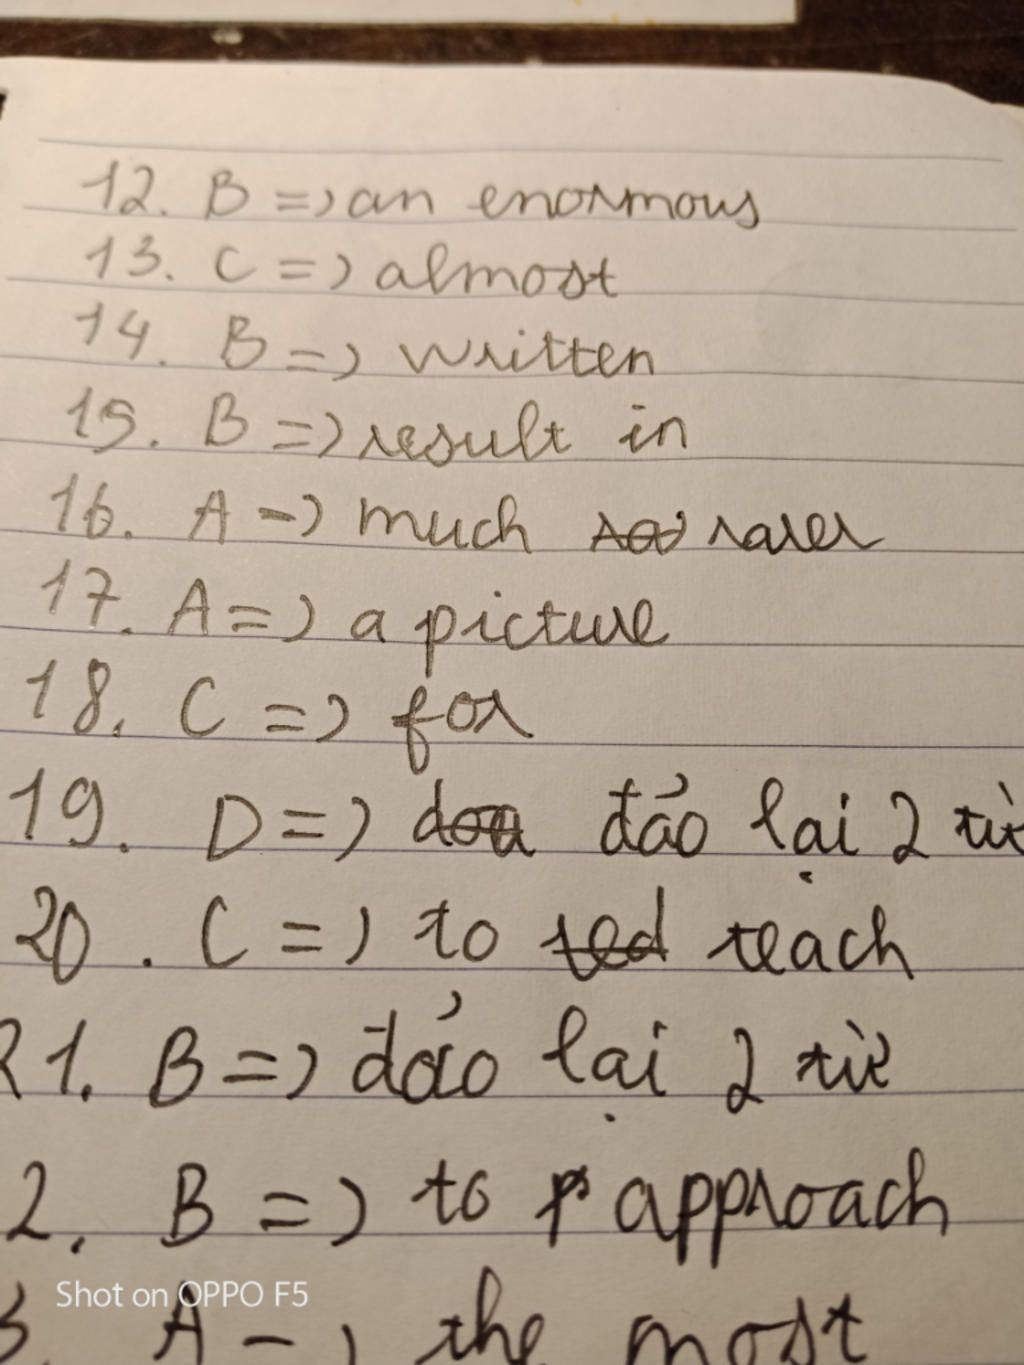 12. B => an enormous
13. C => almost
14. B => written
15. B => result in
16. A => much rarer
17. A => a picture
18. C => for
19. D => đảo lại 2 từ
20. C => to teach
21. B => đảo lại 2 từ
2. B => to approach
3. A => the most
Shot on OPPO F5